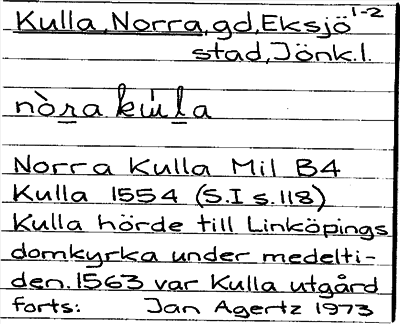 Kulla, Norra, gd, Eksjö 1-2
stad, Jönk.l.
nòra kúla
Norra Kulla Mil B4
Kulla 1554 (S.I s.118)
Kulla hörde till Linköpings
domkyrka under medelti-
den. 1563 var Kulla utgård
forts: Jan Agertz 1973